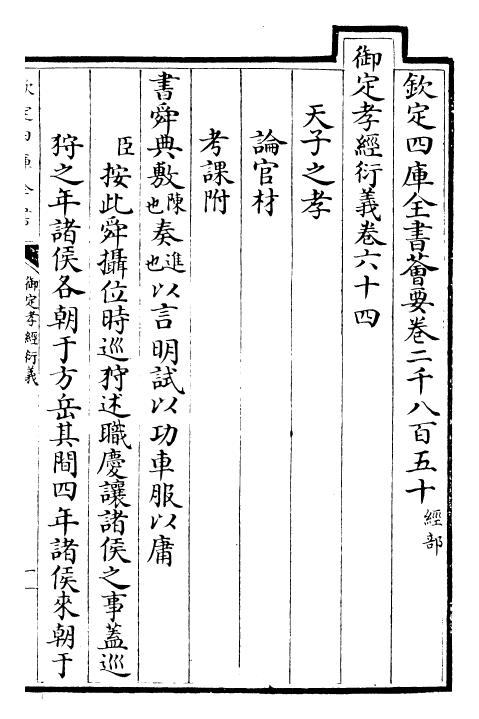 欽定四庫全書薈要卷二千八百五十 經部
御定孝經衍義卷六十四
天子之孝
論官材
考課附
書舜典敷陳也奏進也以言明試以功車服以庸
臣按此舜攝位時巡狩述職慶讓諸侯之事蓋巡
狩之年諸侯各朝于方岳其間四年諸侯來朝于
欽定四庫全書
御定孝經衍義
一